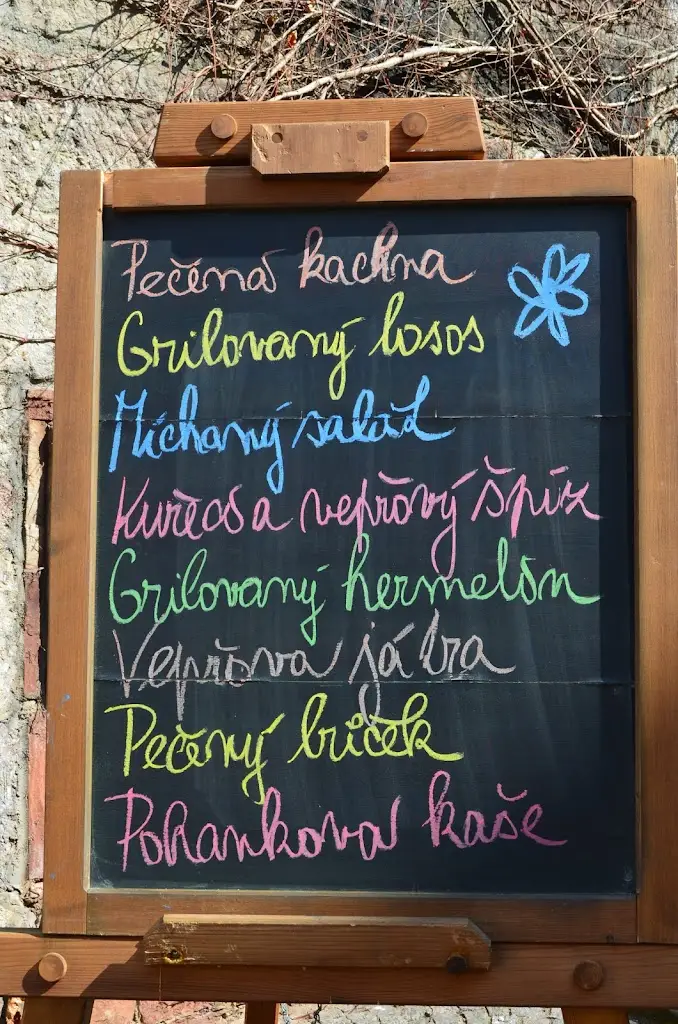 Pečená kachna
Grilovaný losos
Míchaný salát
Kuřecí a vepřový špíz
Grilovaný hermelín
Vepřová játra
Pečený bůček
Pohanková kaše